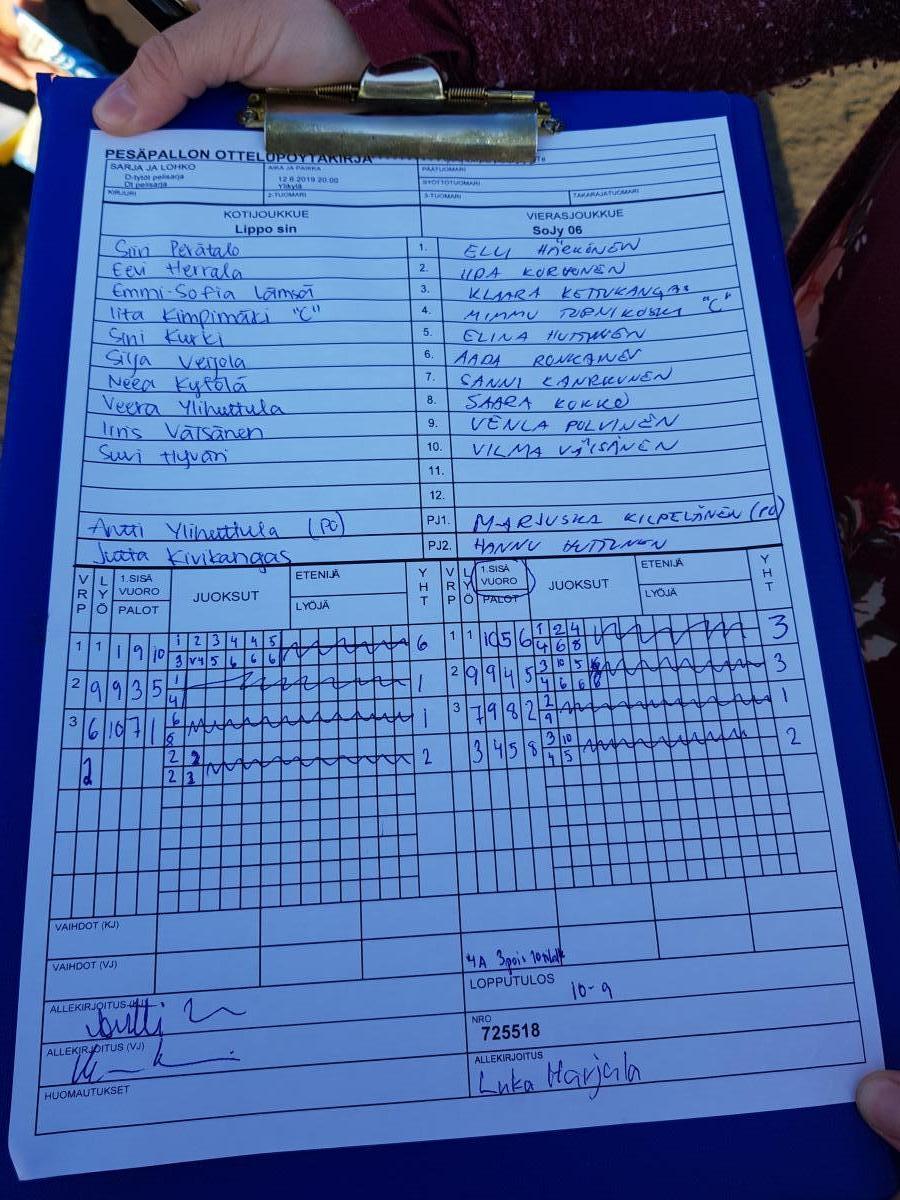 PESÄPALLON OTTELUPÖYTÄKIRJA
SARJA JA LOHKO AIKA JA PAIKKA PÄÄTUOMARI
D-tytöt pelisarja 12.6.2019 20.00 SYÖTTÖTUOMARI
Dt pelisarja Ylikylä
KIRJURI 2-TUOMARI 3-TUOMARI TAKARAJATUOMARI
KOTIJOUKKUE VIERASJOUKKUE
Lippo sin SoJy 06
Siiri Perätalo 1. ELLI HÄRKÖNEN
Eevi Herrala 2. IIDA KORHONEN
Emmi-Sofia Lämsä 3. KLAARA KETTUKANGAS
Iita Kimpimäki "C" 4. MIMMU TORNIKOSKI "C"
Sini Kurki 5. ELINA HUTTUNEN
Silja Verjola 6. AADA RONKAINEN
Neea Kyföla 7. SANNI KARKKUNEN
Veera Ylihuttula 8. SAARA KOKKO
Iiris Väisänen 9. VENLA POLVINEN
Suvi Hyväri 10. VILMA VÄISÄNEN
11.
12.
Antti Ylihuttula (PO) PJ1. MARJUSKA KILPELÄINEN (PO)
Jutta Kivikangas PJ2. HANNU HUTTUNEN
VRP LYÖ 1.SISÄ VUORO PALOT JUOKSUT ETENIJÄ LYÖJÄ YHT VRP LYÖ 1.SISÄ VUORO PALOT JUOKSUT ETENIJÄ LYÖJÄ YHT
1 1 1 9 10 1 2 3 4 4 5 6 1 1 10 5 6 1 2 4 3
5 6 6 6 4 6 8
2 9 9 3 5 1 1 2 9 9 4 5 3 10 5 3
4 4 6 6
3 6 10 7 1 6 1 3 7 9 8 2 2 1
8 9
2 2 2 2 3 4 5 8 3 10 2
2 3 4 5
VAIHDOT (KJ)
VAIHDOT (VJ) 4A 3pois
ALLEKIRJOITUS LOPPUTULOS 10-9
Antti
ALLEKIRJOITUS (VJ) NRO
725518
HUOMAUTUKSET ALLEKIRJOITUS
Luka Harjula